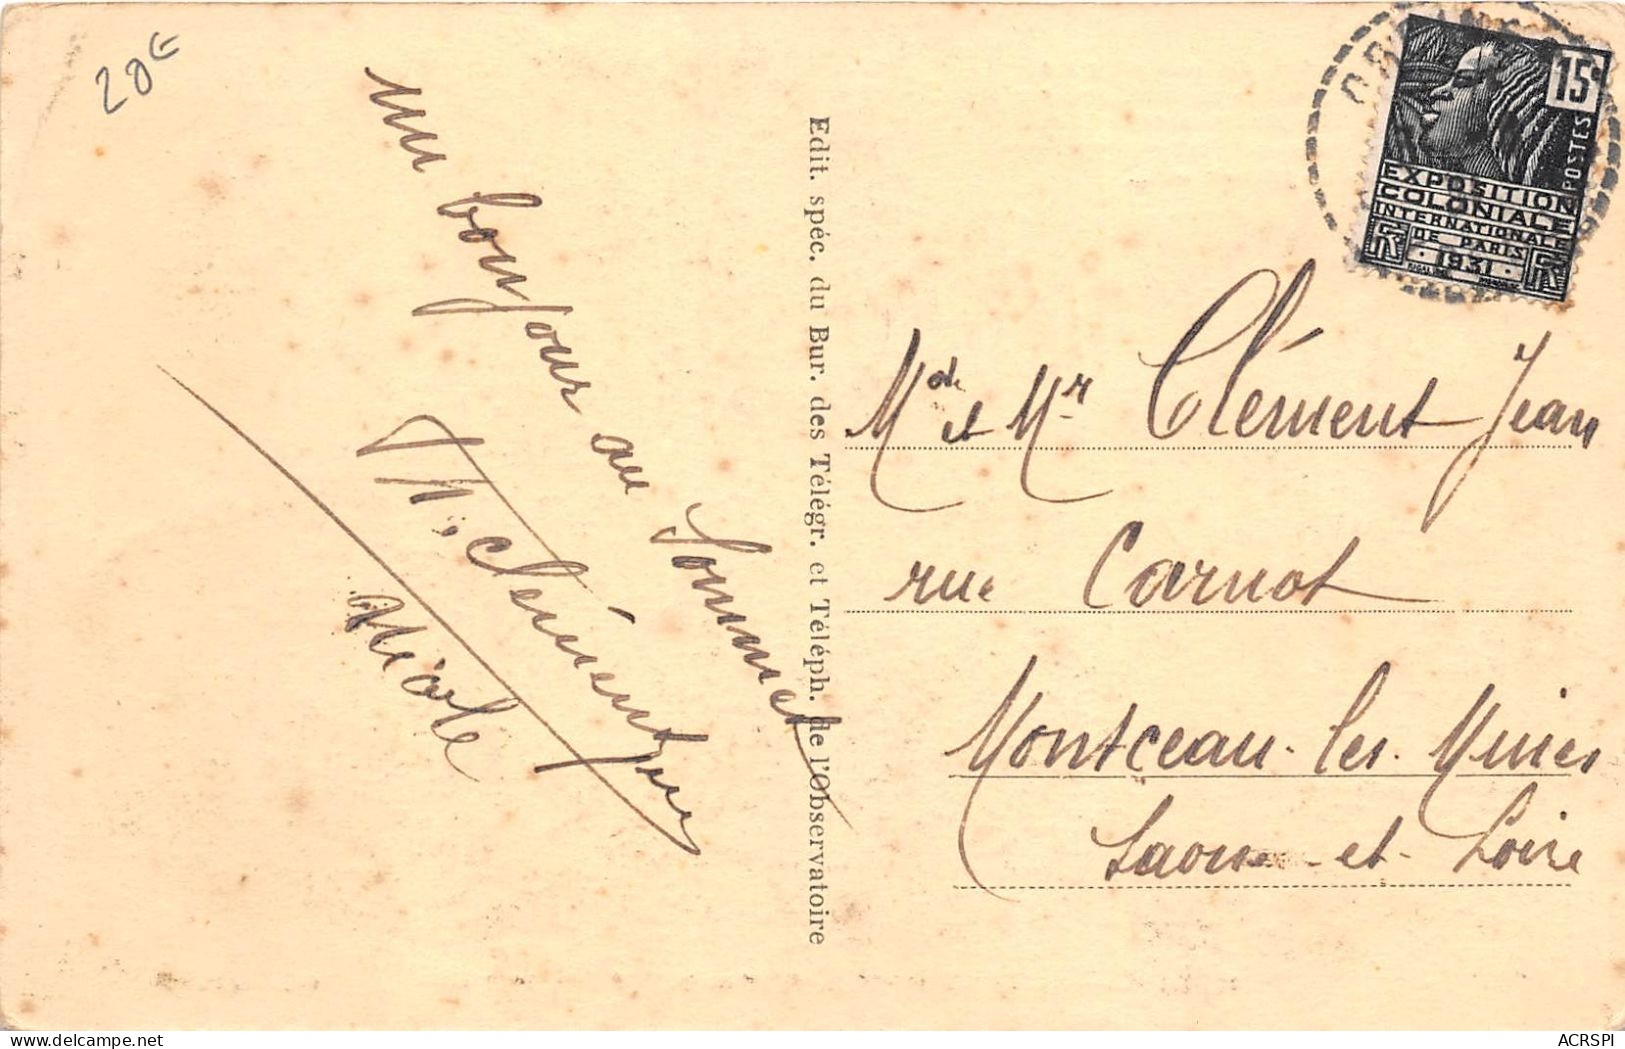 20€
un bonjour au Sommet
Th. Clément
Nicole
Edit. spéc. du Bur. des Télégr. et Téléph. de l'Observatoire
15c
POSTES
EXPOSITION
COLONIALE
INTERNATIONALE
DE PARIS
1931
RF RF
Mde et Mr Clément Jean
rue Carnot
Montceau-les-Mines
Saone-et-Loire
delcampe.net
ACRSPI